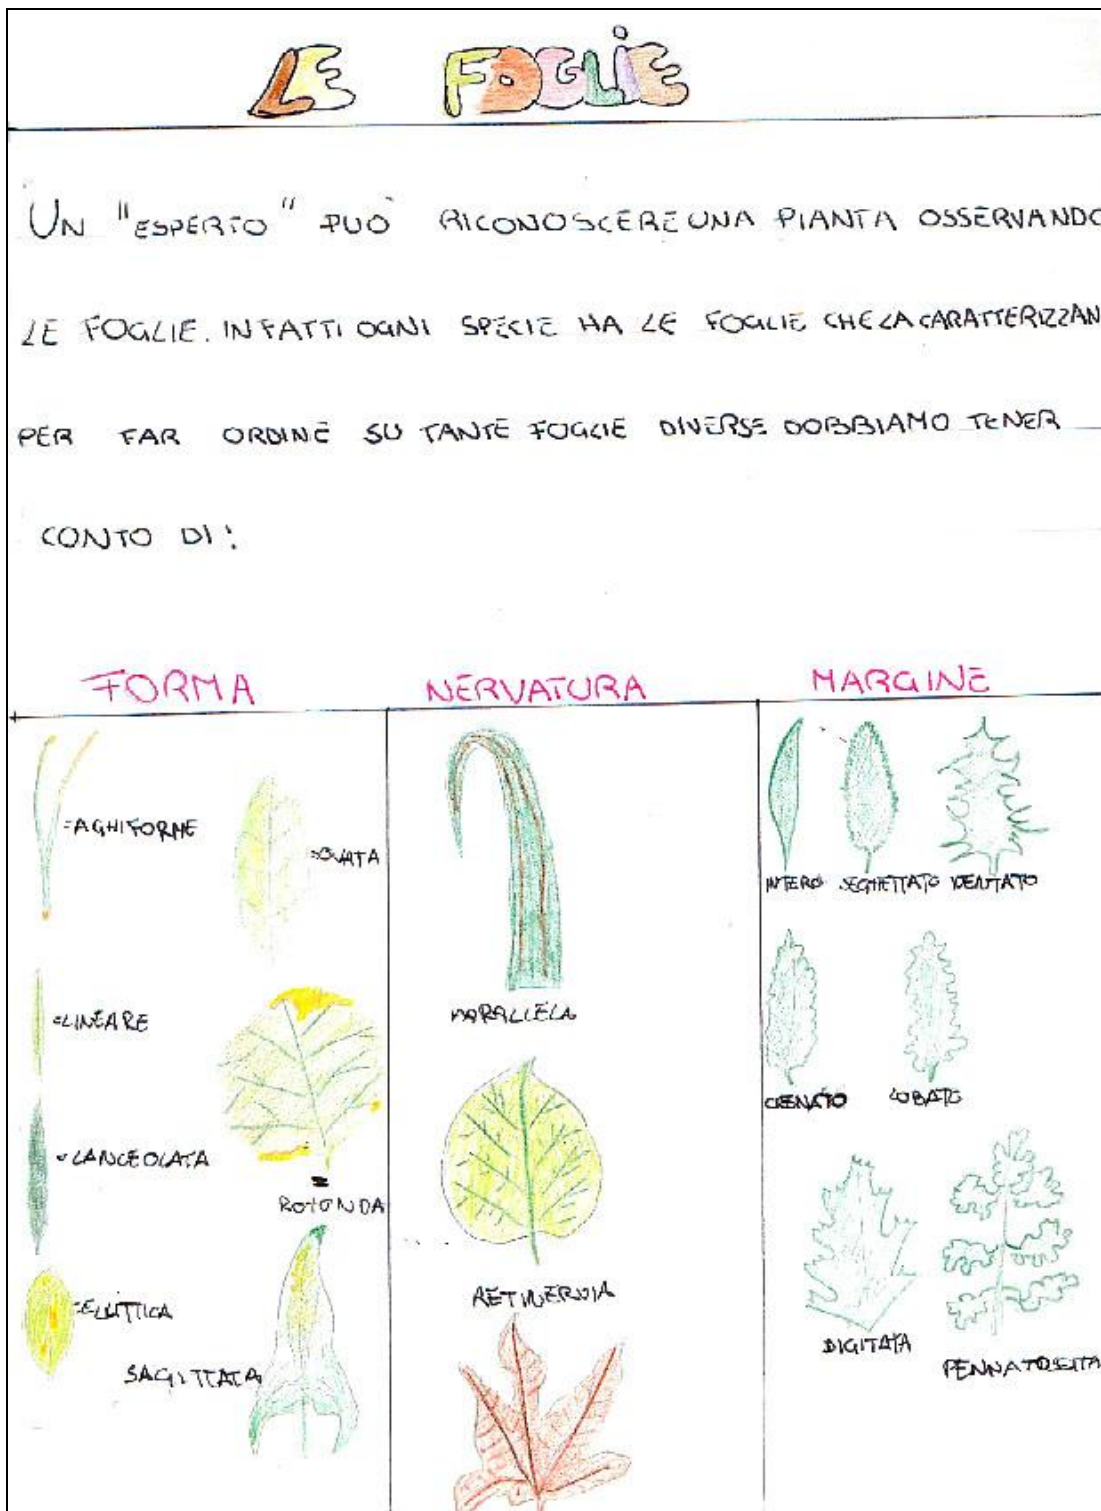 LE FOGLIE
UN "ESPERTO" PUÒ RICONOSCERE UNA PIANTA OSSERVANDO
LE FOGLIE. INFATTI OGNI SPECIE HA LE FOGLIE CHE LA CARATTERIZZAN
PER FAR ORDINE SU TANTE FOGLIE DIVERSE DOBBIAMO TENER
CONTO DI:
FORMA
=AGHIFORME
=OVATA
=LINEARE
=LANCEOLATA
ROTONDA
=ELLITTICA
SAGITTATA
NERVATURA
PARALLELA
RETINERVIA
MARGINE
INTERO SEGHETTATO DENTATO
CRENATO LOBATO
DIGITATA
PENNATOSETTA